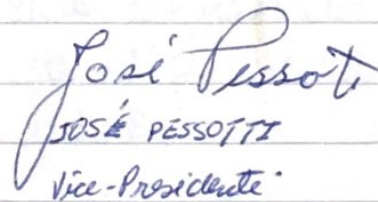 José Pessoti
JOSÉ PESSOTTI
Vice-Presidente